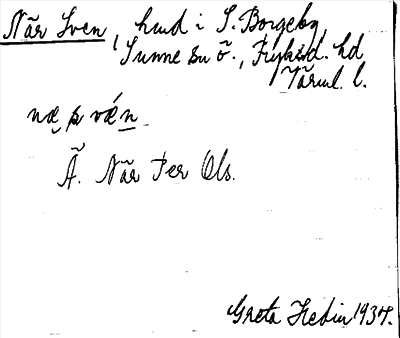 När Sven, hmd i S. Borgeby,
Sunne sn ö., Fryksd. hd
Värml. l.
næ s væn.
Ä. När Per Ols.
Greta Hedin 1937.